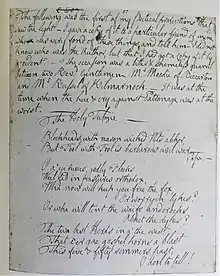 The following was the first of my Poetical productions that
saw the light. — I gave a copy of it to a particular friend of mine
who was very fond of these things, and told him — I did not
know who was the Author, but that I had got a copy of it by
accident. — The occasion was a bitter & shameful quarrel
between two Revd. Gentlemen, Mr. Moodie of Riccarton
and Mr. Russel of Kilmarnock. — It was at the
time when the hue & cry against Patronage was at the
worst.
The Holy Tulzie —
Blockheads with reason wicked Wits abhor
But Fool with Fool is barbarous civil war
Pope —
O a' ye pious, godly Flocks
Weel fed in pastures orthodox,
Wha now will keep you frae the fox,
Or worryin tykes?
Or wha will tent the waifs an' crocks
About the dykes?
The twa best Herds in a' the west
That e'er gae gospel horns a blast
This five & fifty simmers past
O dool to tell!